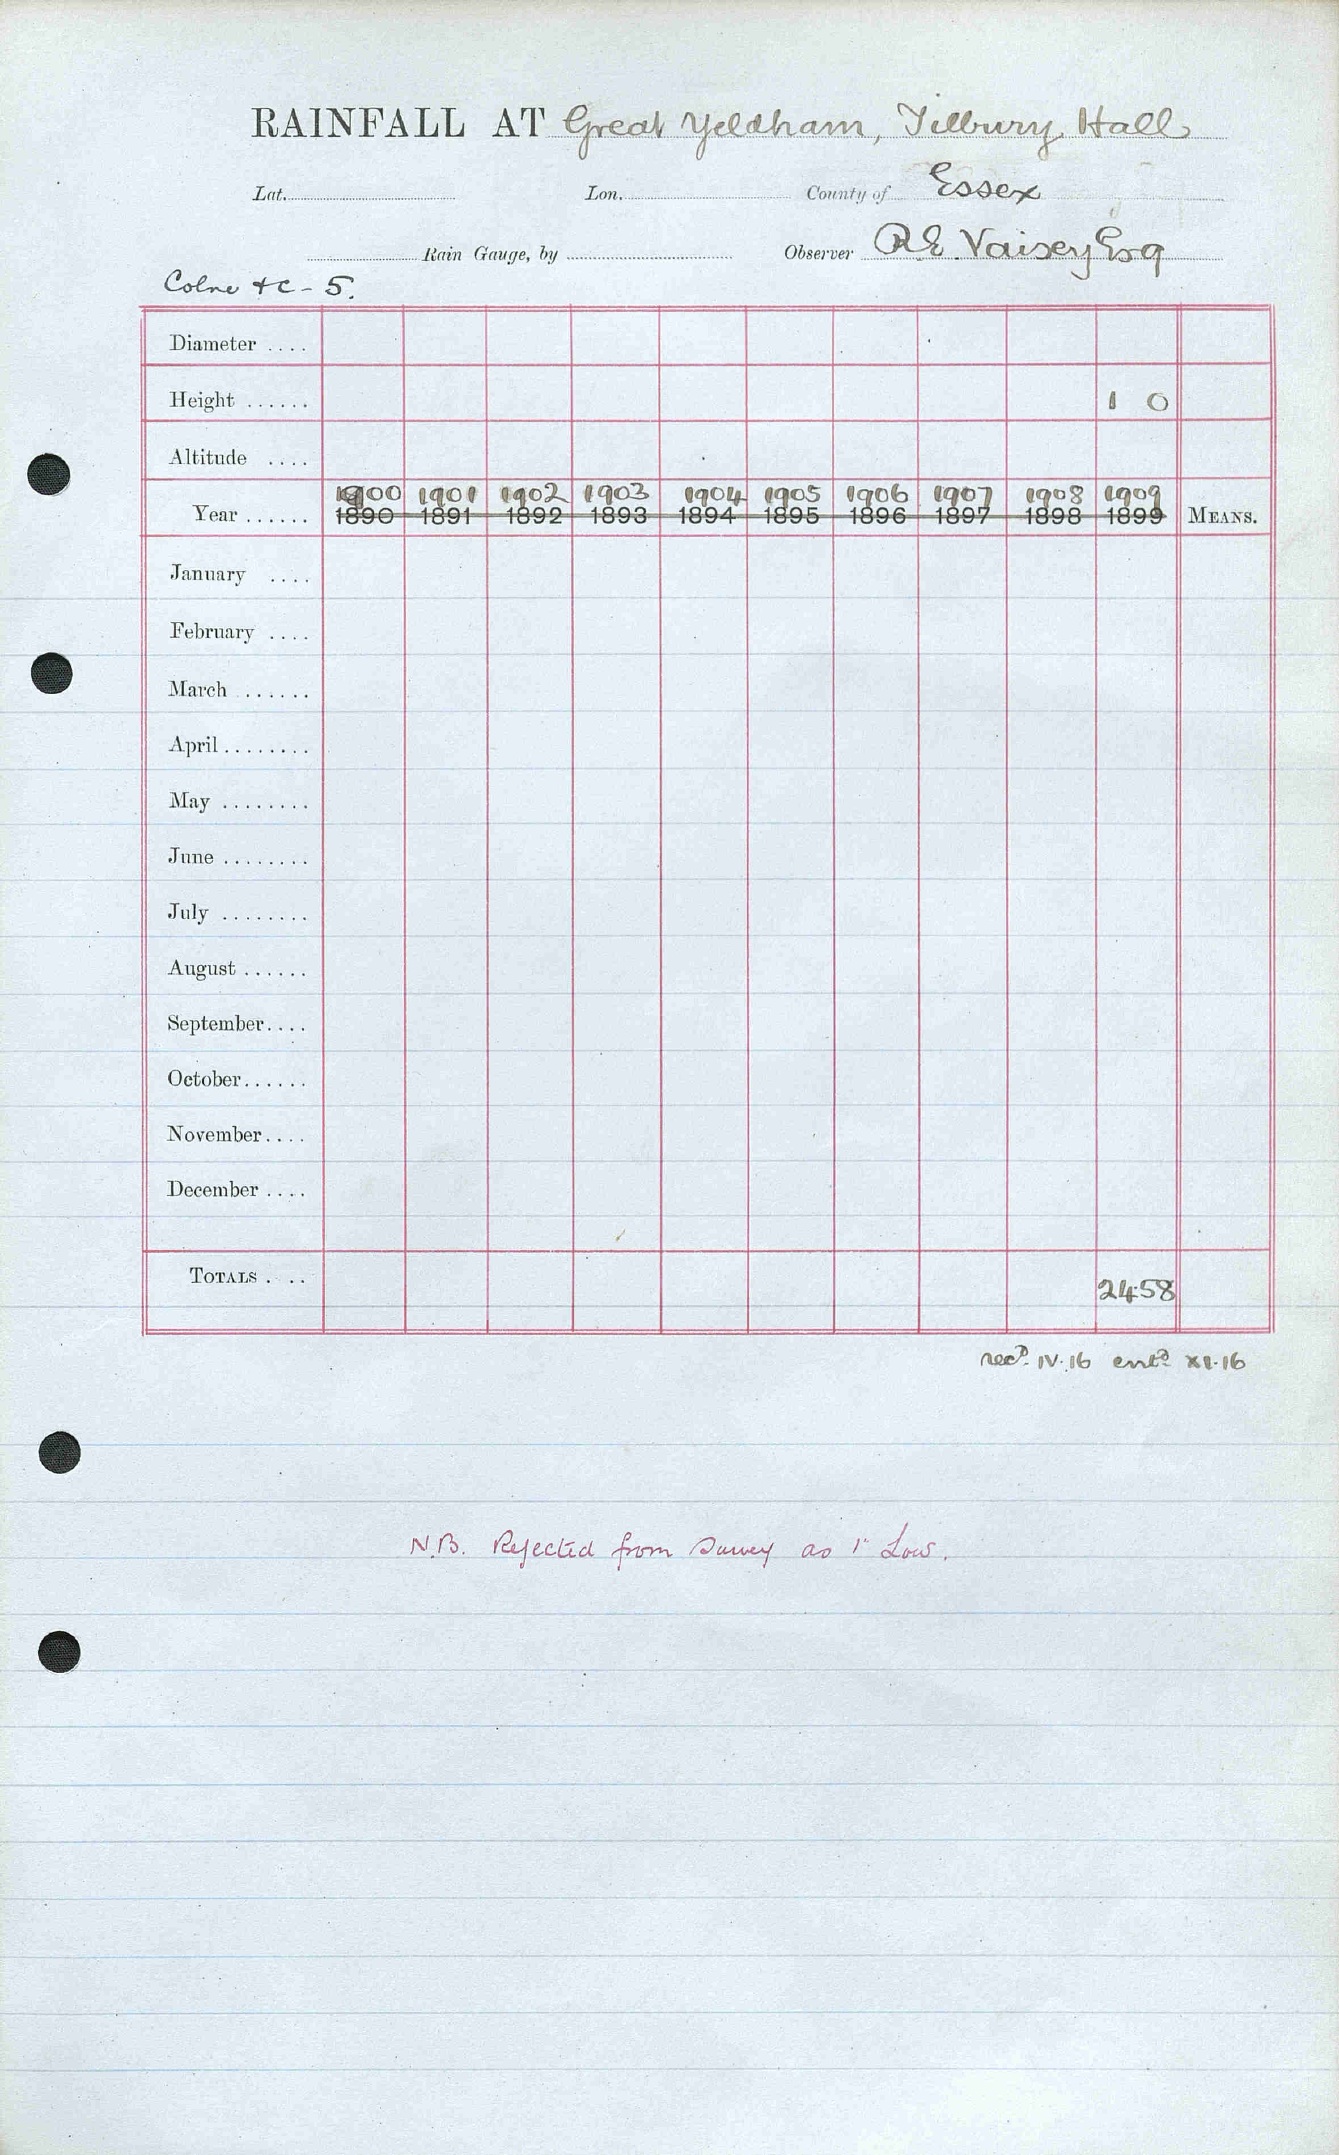 RAINFALL AT Great Yeldham, Tilbury Hall
Lat. Lon. County of Essex
Rain Gauge, by Observer R E Vaisey Esq
Colne &c - 5.
Diameter ....
Height ...... 1 0
Altitude ....
1900 1901 1902 1903 1904 1905 1906 1907 1908 1909
Year ...... 1890 1891 1892 1893 1894 1895 1896 1897 1898 1899 MEANS.
January ....
February ....
March ......
April ........
May ........
June ........
July ........
August ......
September ....
October ......
November ....
December ....
TOTALS . .. 24.58
recd. IV.16 entd. XI.16
N.B. Rejected from Survey as 1" Low.